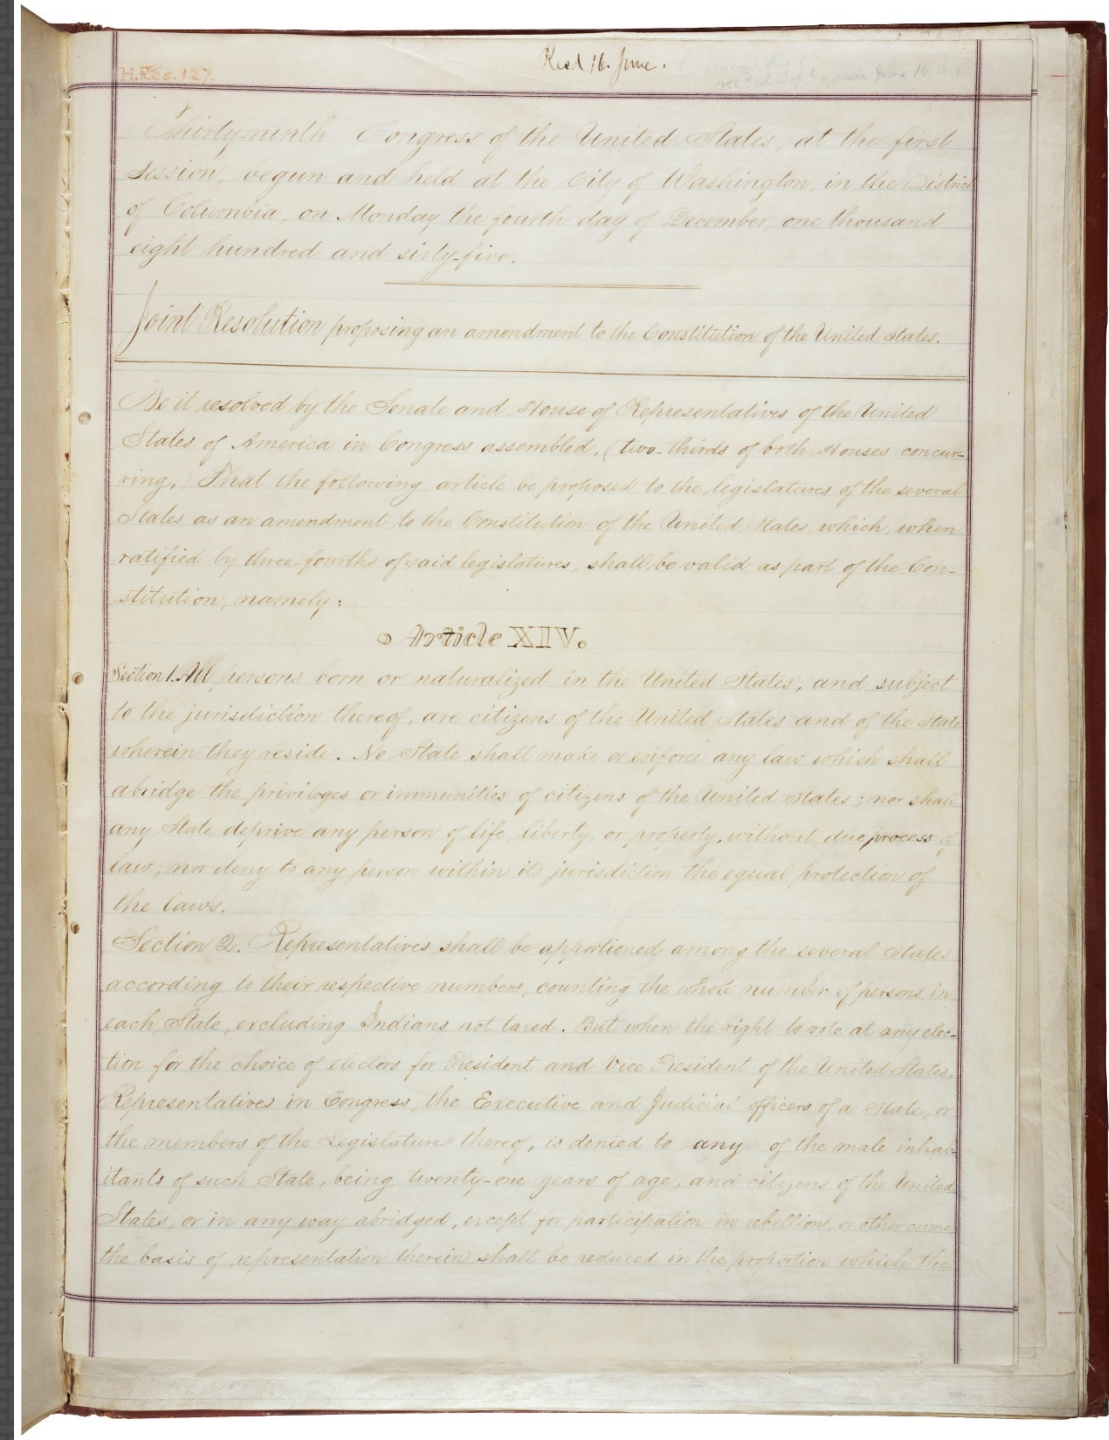 H.Res. 127.
Recd 16. June.
Thirty-ninth Congress of the United States, at the first
Session, begun and held at the City of Washington, in the District
of Columbia, on Monday the fourth day of December, one thousand
eight hundred and sixty-five.
Joint Resolution proposing an amendment to the Constitution of the United States.
Be it resolved by the Senate and House of Representatives of the United
States of America in Congress assembled, (two-thirds of both Houses concur-
ring,) That the following article be proposed to the legislatures of the several
States as an amendment to the Constitution of the United States, which, when
ratified by three-fourths of said legislatures, shall be valid as part of the Con-
stitution, namely:
Article XIV.
Section 1. All persons born or naturalized in the United States, and subject
to the jurisdiction thereof, are citizens of the United States and of the State
wherein they reside. No State shall make or enforce any law which shall
abridge the privileges or immunities of citizens of the United States; nor shall
any State deprive any person of life, liberty, or property, without due process of
law; nor deny to any person within its jurisdiction the equal protection of
the laws.
Section 2. Representatives shall be apportioned among the several States
according to their respective numbers, counting the whole number of persons in
each State, excluding Indians not taxed. But when the right to vote at any elec-
tion for the choice of electors for President and Vice President of the United States,
Representatives in Congress, the Executive and Judicial officers of a State, or
the members of the Legislature thereof, is denied to any of the male inhab-
itants of such State, being twenty-one years of age, and citizens of the United
States, or in any way abridged, except for participation in rebellion, or other crime,
the basis of representation therein shall be reduced in the proportion which the